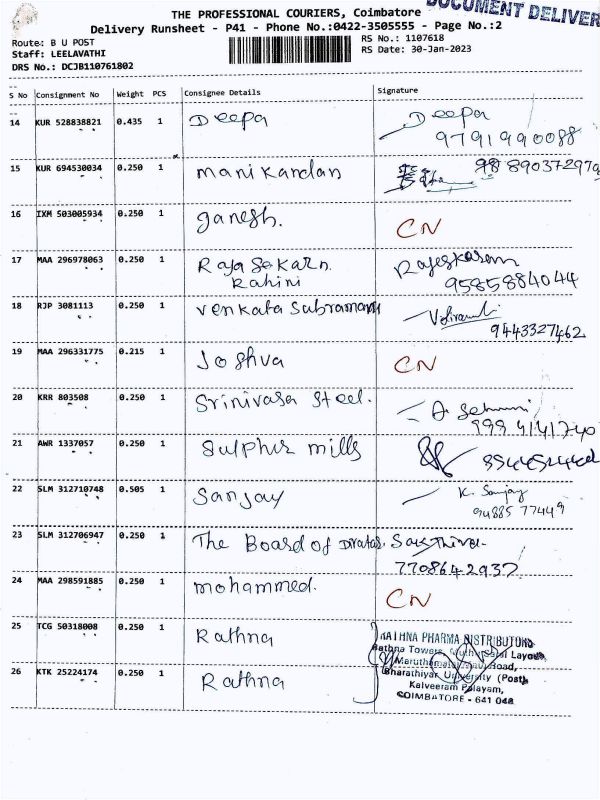 THE PROFESSIONAL COURIERS, Coimbatore
DOCUMENT DELIVER
Delivery Runsheet - P41 - Phone No.:0422-3505555 - Page No.:2
Route: B U POST
RS No.: 1107618
Staff: LEELAVATHI
RS Date: 30-Jan-2023
DRS No.: DCJB110761802
S No Consignment No Weight PCS Consignee Details Signature
14 KUR 528838821 0.435 1 Deepa Deepa
9791990088
15 KUR 694530034 0.250 1 Manikandan
16 IXM 503005934 0.250 1 Ganesh. CN
17 MAA 296978063 0.250 1 Raja Sekarn.
Rahini 9585884044
18 RJP 3081113 0.250 1 Venkata Subramani
9443327462
19 MAA 296331775 0.215 1 Joshva CN
20 KRR 803508 0.250 1 Srinivasa Steel.
21 AWR 1337057 0.250 1 Sulphur mills
22 SLM 312710748 0.505 1 Sanjay K. Sanjay
94885 77449
23 SLM 312706947 0.250 1 The Board of Sakthivel.
7708642937
24 MAA 298591885 0.250 1 mohammed. CN
25 TCG 50318008 0.250 1 Rathna
RATHNA PHARMA DISTRIBUTORS
Rathna Towers, Layout,
Road,
Bharathiyar University (Post)
26 KTK 25224174 0.250 1 Rathna
Kalveeram Palayam,
COIMBATORE - 641 046